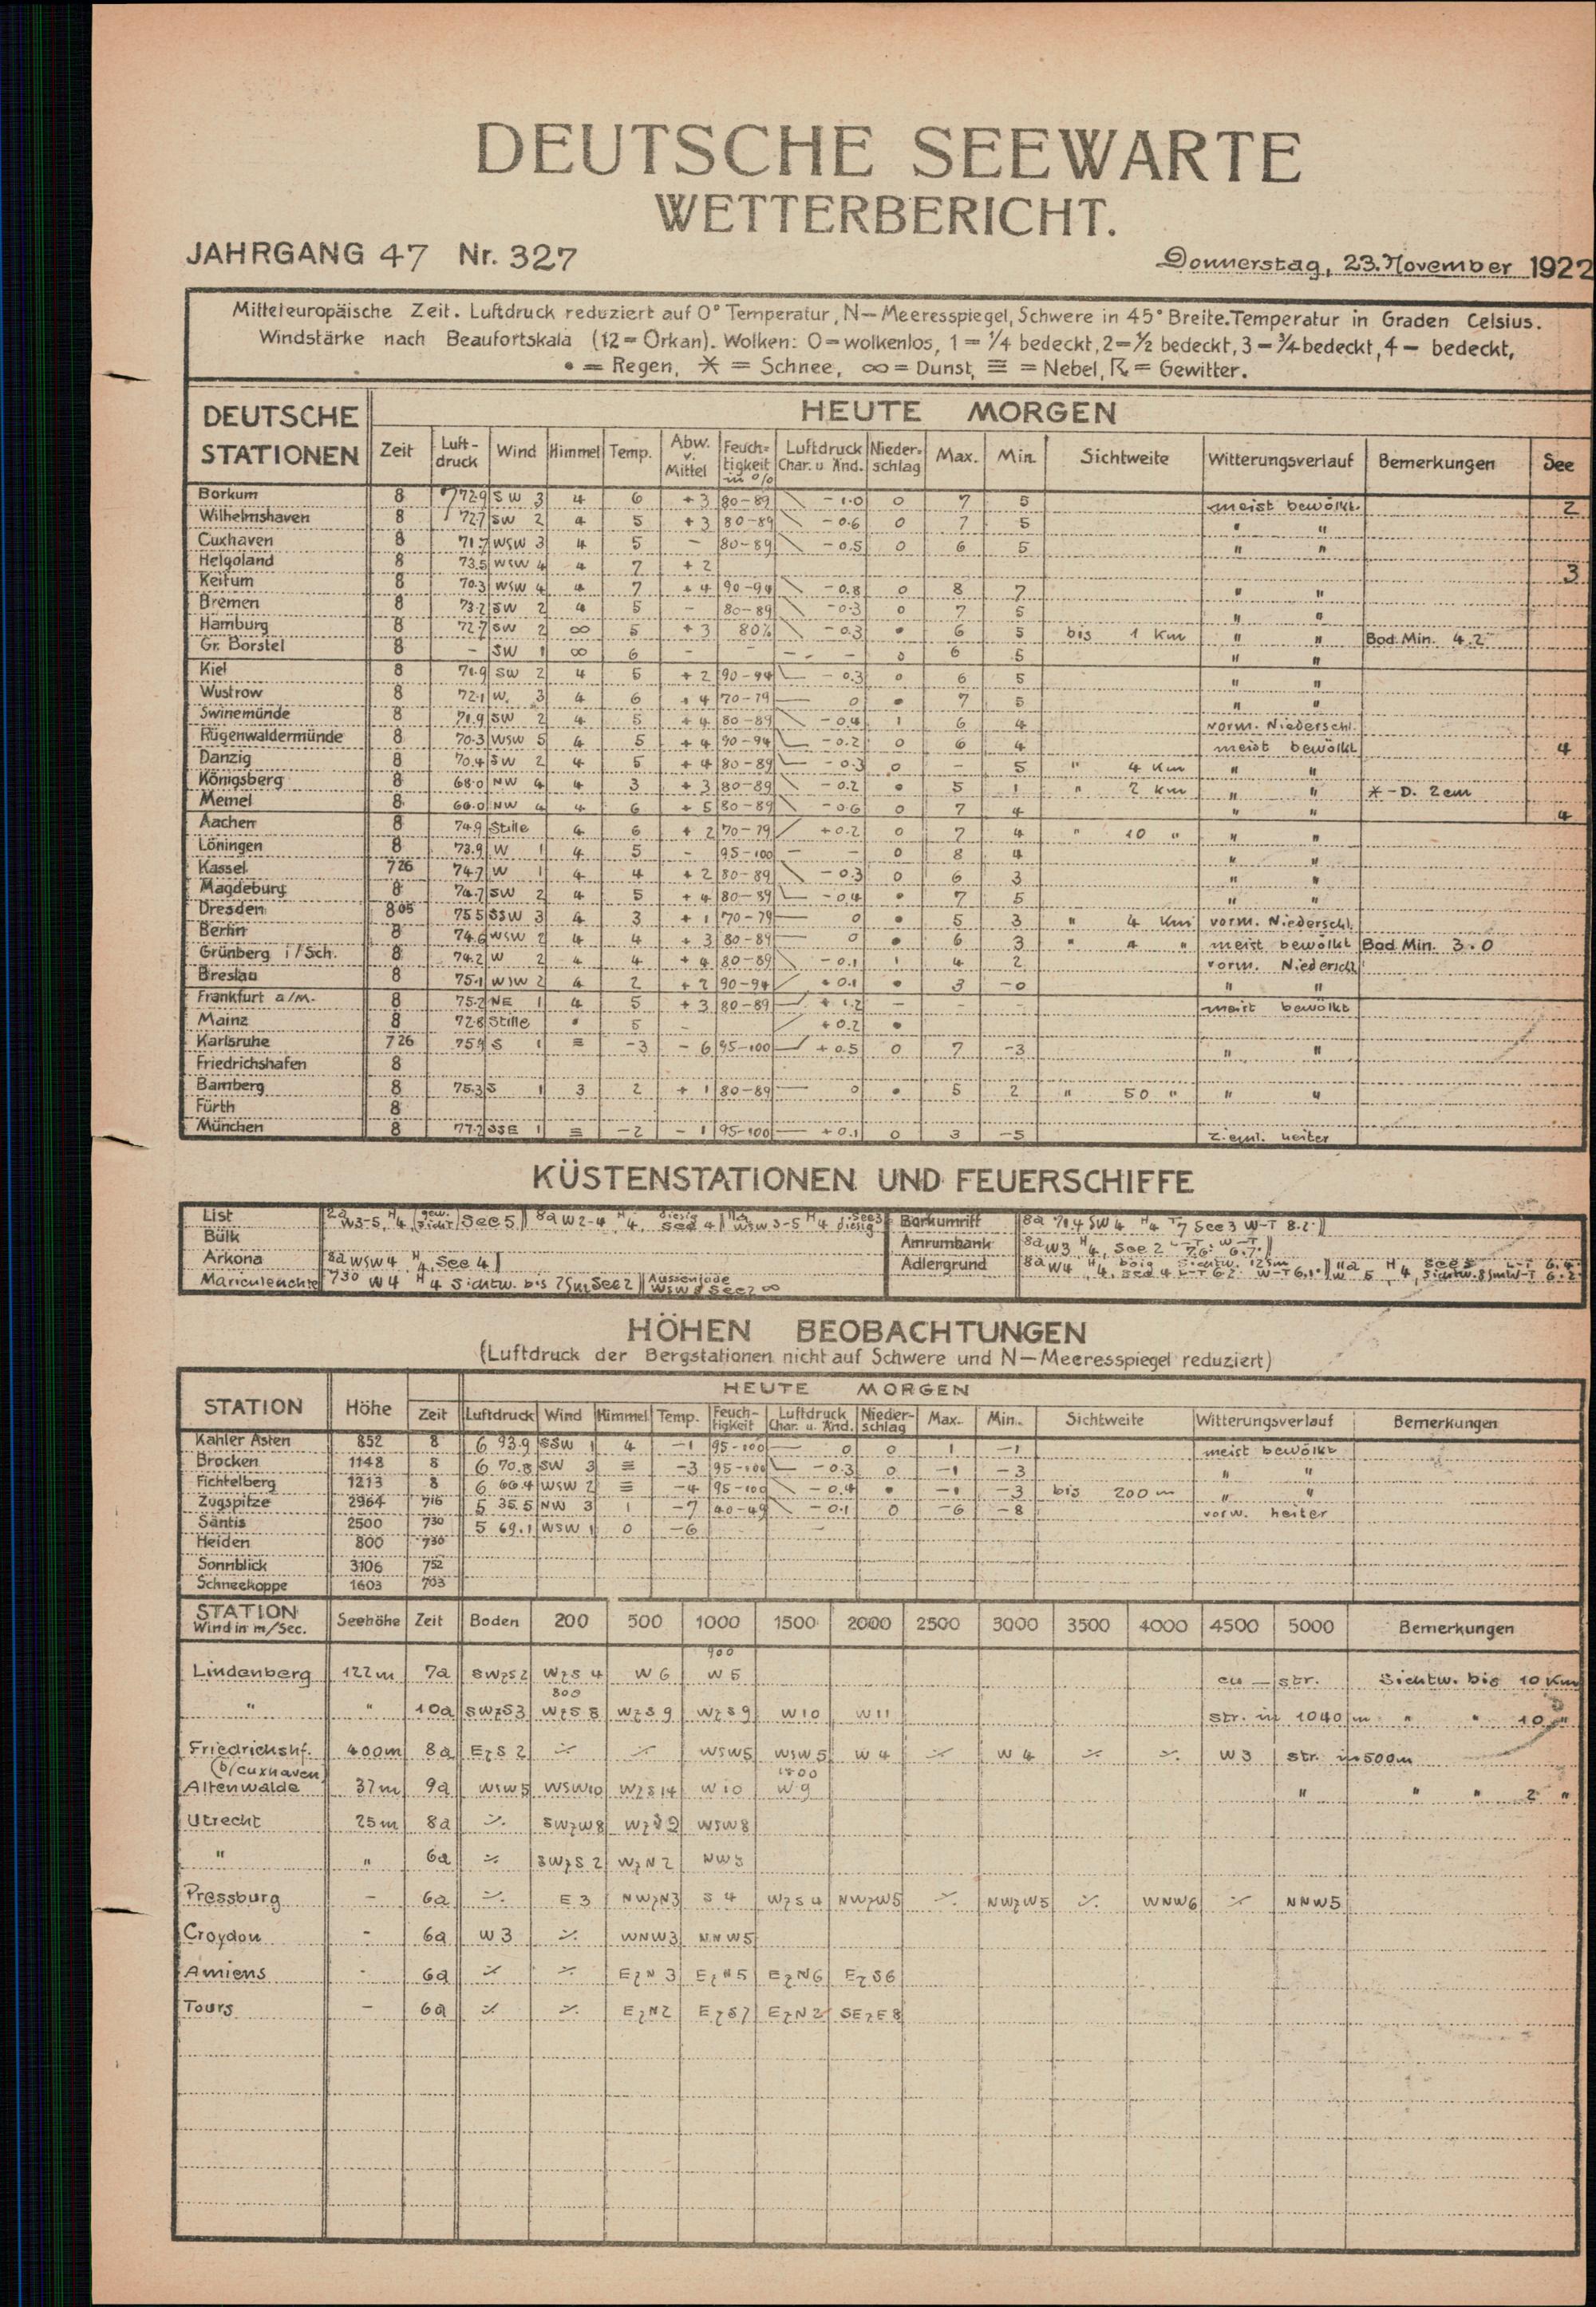 DEUTSCHE SEEWARTE
WETTERBERICHT.
JAHRGANG 47 Nr. 327 Donnerstag, 23. November 1922
Mitteleuropäische Zeit. Luftdruck reduziert auf 0° Temperatur, N—Meeresspiegel, Schwere in 45° Breite. Temperatur in Graden Celsius.
Windstärke nach Beaufortskala (12=Orkan). Wolken: 0=wolkenlos, 1=1/4 bedeckt, 2=1/2 bedeckt, 3=3/4 bedeckt, 4= bedeckt,
• = Regen, ✳ = Schnee, ∞ = Dunst, ≡ = Nebel, ☈ = Gewitter.
DEUTSCHE STATIONEN HEUTE MORGEN
Zeit Luft-druck Wind Himmel Temp. Abw. v. Mittel Feuch-tigkeit in % Luftdruck Char. u. Änd. Nieder-schlag Max. Min. Sichtweite Witterungsverlauf Bemerkungen See
Borkum 8 772.9 SW 3 4 6 +3 80-89 \ -1.0 0 7 5 meist bewölkt. 2
Wilhelmshaven 8 72.7 SW 2 4 5 +3 80-89 \ -0.6 0 7 5 " "
Cuxhaven 8 71.7 WSW 3 4 5 - 80-89 \ -0.5 0 6 5 " "
Helgoland 8 73.5 WSW 4 4 7 +2 3
Keitum 8 70.3 WSW 4 4 7 +4 90-94 \ -0.8 0 8 7 " "
Bremen 8 73.2 SW 2 4 5 - 80-89 \ -0.3 0 7 5 " "
Hamburg 8 72.7 SW 2 ∞ 5 +3 80% \ -0.3 • 6 5 bis 1 Km " " Bod. Min. 4.2
Gr. Borstel 8 - SW 1 ∞ 6 - - - - 0 6 5 " "
Kiel 8 71.9 SW 2 4 5 +2 90-94 -0.3 0 6 5 " "
Wustrow 8 72.1 W. 3 4 6 +4 70-79 — 0 • 7 5 " "
Swinemünde 8 71.9 SW 2 4 5 +4 80-89 \ -0.4 1 6 4 vorm. Niederschl.
Rügenwaldermünde 8 70.3 WSW 5 4 5 +4 90-94 -0.2 0 6 4 meist bewölkt 4
Danzig 8 70.4 SW 2 4 5 +4 80-89 -0.3 0 - 5 " 4 Km " "
Königsberg 8 68.0 NW 4 4 3 +3 80-89 \ -0.2 • 5 1 " 2 Km " " ✳-D. 2cm
Memel 8 66.0 NW 4 4 6 +5 80-89 \ -0.6 0 7 4 " " 4
Aachen 8 74.9 Stille 4 6 +2 70-79 / +0.2 0 7 4 " 10 " " "
Löningen 8 73.9 W 1 4 5 - 95-100 — - 0 8 4 " "
Kassel 726 74.7 W 1 4 4 +2 80-89 \ -0.3 0 6 3 " "
Magdeburg 8 74.7 SW 2 4 5 +4 80-89 -0.4 • 7 5 " "
Dresden 805 75.5 SSW 3 4 3 +1 70-79 — 0 • 5 3 " 4 Km vorm. Niederschl.
Berlin 8 74.6 WSW 2 4 4 +3 80-89 — 0 • 6 3 " 4 " meist bewölkt Bod. Min. 3.0
Grünberg i/Sch. 8 74.2 W 2 4 4 +4 80-89 \ -0.1 1 4 2 vorm. Niederschl
Breslau 8 75.1 WSW 2 4 2 +2 90-94 +0.1 • 3 -0 " "
Frankfurt a/M. 8 75.2 NE 1 4 5 +3 80-89 +1.2 - - - meist bewölkt
Mainz 8 72.8 Stille • 5 - / +0.2 •
Karlsruhe 726 75.9 S 1 ≡ -3 -6 95-100 +0.5 0 7 -3 " "
Friedrichshafen 8
Bamberg 8 75.3 S 1 3 2 +1 80-89 — 0 • 5 2 " 50 " " "
Fürth 8
München 8 77.2 SSE 1 ≡ -2 -1 95-100 — +0.1 0 3 -5 Zieml. heiter
KÜSTENSTATIONEN UND FEUERSCHIFFE
List 2a W3-5, H 4, See 5 || 8a W2-4 H 4, diesig See 4 || WSW 3-5 H 4 diesig See 3
Bülk
Arkona 8a WSW 4 H 4, See 4 ||
Marienleuchte 730 W4 H 4 Sichtw. bis 7Sm See 2 || Aussenjade
Borkumriff 8a 71.4 SW 4 H 4 T 7 See 3 W-T 8.2 ||
Amrumbank 8a W3 H 4, See 2 L-T 7.6 W-T 6.7 ||
Adlergrund 8a W4 H 4, böig See 4 Sichtw. 12sm L-T 6.2 W-T 6.1 ||
HÖHEN BEOBACHTUNGEN
(Luftdruck der Bergstationen nicht auf Schwere und N—Meeresspiegel reduziert)
STATION Höhe HEUTE MORGEN
Zeit Luftdruck Wind Himmel Temp. Feuch-tigkeit Luftdruck Char. u. Änd. Nieder-schlag Max. Min. Sichtweite Witterungsverlauf Bemerkungen
Kahler Asten 852 8 6 93.9 SSW 1 4 -1 95-100 — 0 0 1 -1 meist bewölkt
Brocken 1148 8 6 70.8 SW 3 ≡ -3 95-100 -0.3 0 -1 -3 " "
Fichtelberg 1213 8 6 66.4 WSW 2 ≡ -4 95-100 \ -0.4 • -1 -3 bis 200 m " "
Zugspitze 2964 716 5 35.5 NW 3 1 -7 40-49 \ -0.1 0 -6 -8 vorw. heiter
Säntis 2500 730 5 69.1 WSW 1 0 -6 -
Heiden 800 730
Sonnblick 3106 752
Schneekoppe 1603 703
STATION Wind in m/Sec. Seehöhe Zeit Boden 200 500 1000 1500 2000 2500 3000 3500 4000 4500 5000 Bemerkungen
900
Lindenberg 122m 7a SWzS2 WzS 4 W 6 W 5 cu — str. Sichtw. bis 10 Km
800
" " 10a SWzS3 WzS 8 WzS 9 WzS 9 W10 W11 str. in 1040 m " " 10 "
Friedrichshf. 400m 8a EzS 2 ⁒ ⁒ WSW5 WSW 5 W 4 ⁒ W 4 ⁒ ⁒ W 3 str. in 500m
(b/Cuxhaven)
Altenwalde 37m 9a WSW5 WSW10 WzS14 W10 W9 " " " 2 "
Utrecht 25m 8a ⁒ SWzW8 WzS9 WSW8
" " 6a ⁒ SWzS 2 WzN 2 NW3
Pressburg - 6a ⁒ E 3 NWzN3 S 4 WzS 4 NWzW5 ⁒ NWzW5 ⁒ WNW6 ⁒ NNW5
Croydon - 6a W 3 ⁒ WNW3 NNW5
Amiens - 6a ⁒ ⁒ EzN 3 EzN5 EzN6 EzS6
Tours - 6a ⁒ ⁒ EzN2 EzS7 EzN2 SEzE8